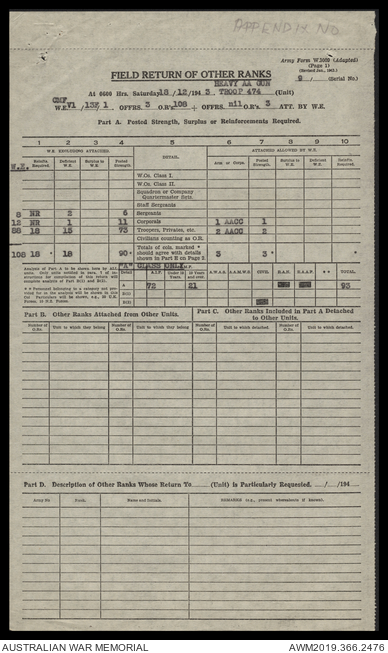 APPENDIX NO
Army Form W.3009 (Adapted)
(Page 1)
(Revised Jan., 1943.)
FIELD RETURN OF OTHER RANKS
9 / (Serial No.)
HEAVY AA GUN
At 0600 Hrs. Saturday 18 / 12 / 194 3. TROOP 474 (Unit)
CMF
W.E. V1 /13F/ 1 OFFRS. 3 O.R's. 108 + OFFRS. nil O.R's. 3 ATT. BY W.E.
Part A. Posted Strength, Surplus or Reinforcements Required.
1 2 3 4 5 6 7 8 9 10
W.E. EXCLUDING ATTACHED. ATTACHED ALLOWED BY W.E.
W.E. Reinfts. Required. Deficient W.E. Surplus to W.E. Posted Strength DETAIL. Arm or Corps. Posted Strength Deficient W.E. Surplus to W.E. Reinfts. Required.
W.Os. Class I.
W.Os. Class II.
Squadron or Company
Quartermaster Sgts.
Staff Sergeants
8 NR 2 6 Sergeants
12 NR 1 11 Corporals 1 AACC 1
88 18 15 73 Troopers, Privates, etc. 2 AACC 2
Civilians counting as O.R.
108 18 * 18 90 * Totals of cols. marked * should agree with details shown in Part B on Page 2 3 3 * *
"A" CLASS ONLY
A 72 21 93
B(i)
B(ii)
Part B. Other Ranks Attached from Other Units. Part C. Other Ranks Included in Part A Detached
to Other Units.
Number of O.Rs. Unit to which they belong Number of O.Rs. Unit to which they belong Number of O.Rs. Unit to which detached. Number of O.Rs. Unit to which detached.
Part D. Description of Other Ranks Whose Return To (Unit) is Particularly Requested. / /194
Army No Rank. Name and Initials. REMARKS (e.g., present whereabouts if known).
AUSTRALIAN WAR MEMORIAL AWM2019.366.2476